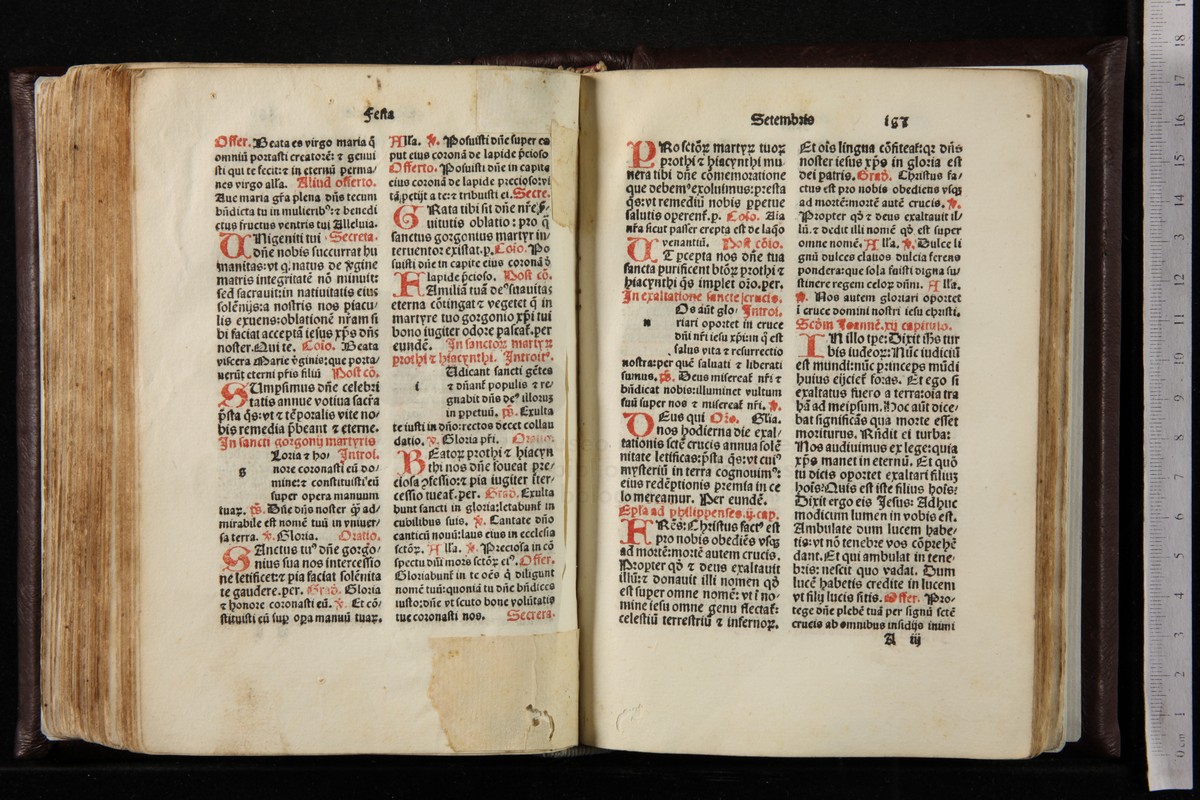 Festa
Offer. Beata es virgo maria q̄
omniū portasti creatorē: ⁊ genui
sti qui te fecit: ⁊ in eternū perma/
nes virgo alła. Aliud offerto.
Aue maria gr̄a plena dn̄s tecum
bn̄dicta tu in mulieribꝰ: ⁊ benedi
ctus fructus ventris tui Alleluia.
UNigeniti tui Secreta.
dn̄e nobis succurrat hu
manitas: vt q natus de ꝟgine
matris integritatē nō minuit:
sed sacrauit: in natiuitatis eius
solēnijs: a nostris nos piacu/
lis exuens: oblationē nr̄am si
bi faciat acceptā iesus xp̄s dn̄s
noster. Qui te. Cōio. Beata
viscera Marie ꝟginis: que porta/
uerūt eterni pr̄is filiū Post cō.
SUmpsimus dn̄e celebri
tatis annue votiua sacr̄a
p̄sta q̄s: vt ⁊ tēporalis vite no/
bis remedia p̄beant ⁊ eterne.
In sancti gorgonij martyris
Loria ⁊ ho/ Introi.
g nore coronasti eū do/
mine: ⁊ constituisti eū
super opera manuum
tuaꝝ. p̄s. Dn̄e dn̄s noster q̄ꝫ ad/
mirabile est nomē tuū in vniuer/
sa terra. ꝟ. Gloria. Oratio.
SAnctus tuꝰ dn̄e gorgo/
nius sua nos intercessio
ne letificet: ⁊ pia faciat solēnita
te gaudere. per. Grad. Gloria
⁊ honore coronasti eū. ꝟ. Et cō/
stituisti eū sup op̄a manuū tuaꝝ.
Alła. ꝟ. Posuisti dn̄e super ca
put eius coronā de lapide p̄cioso
Offerto. Posuisti dn̄e in capite
eius coronā de lapide precioso: vi
tā petijt a te: ⁊ tribuisti ei. Secre.
GRata tibi sit dn̄e nr̄e ẜ/
uitutis oblatio: pro q̄
sanctus gorgonius martyr in/
teruentor existat. p. Cōio. Po
suisti dn̄e in capite eius coronā ð
lapide p̄cioso. Post cō.
FAmiliā tuā deꝰ suauitas
eterna cōtingat ⁊ vegetet q̄ in
martyre tuo gorgonio xp̄i tui
bono iugiter odore pascat̄. per
eundē. In sanctoꝝ martyꝝ
prothi ⁊ hiacynthi. Introitꝰ.
Udicant sancti gētes
i ⁊ dn̄ant̄ populis ⁊ re/
gnabit dn̄s deꝰ illoruꝫ
in ꝑpetuū. p̄s. Exulta
te iusti in dn̄o: rectos decet collau
datio. ꝟ. Gloria pr̄i. Oratio.
BEatoꝝ prothi ⁊ hiacyn
thi nos dn̄e foueat pre/
ciosa ꝯfessio: ⁊ pia iugiter īter/
cessio tueat̄. per. Grad. Exulta
bunt sancti in gloria: letabunt̄ in
cubilibus suis. ꝟ. Cantate dn̄o
canticū nouū: laus eius in ecclesia
sctōꝝ. Alła. ꝟ. Preciosa in cō
spectu dn̄i mors sctōꝝ eiꝰ. Offer.
Gloriabunt̄ in te oēs q̄ diligunt
nomē tuū: quoniā tu dn̄e bn̄dices
iusto: dn̄e vt scuto bone volūtatis
tue coronasti nos. Secreta.
Setembris 157
PRo sctōꝝ martyꝝ tuoꝝ
prothi ⁊ hiacynthi mu/
nera tibi dn̄e cōmemoratione
que debemꝰ exoluimus: presta
q̄s: vt remediū nobis ꝑpetue
salutis operent̄. p. Cōio. Aīa
nr̄a sicut passer erepta est de laq̄o
venantiū. Post cōio.
UT ꝑcepta nos dn̄e tua
sancta purificent btōꝝ prothi ⁊
hiacynthi q̄s implet or̄o. per.
In exaltatione sancte crucis.
Os aūt glo/ Introi.
n riari oportet in cruce
dn̄i nr̄i iesu xp̄i: in q̄ est
salus vita ⁊ resurrectio
nostra: per quē saluati ⁊ liberati
sumus. p̄s. Deus misereat̄ nr̄i ⁊
bn̄dicat nobis: illuminet vultum
suū super nos ⁊ misereat̄ nr̄i. ꝟ.
DEus qui Or̄o. Glia.
nos hodierna die exal/
tationis sctē crucis annua solē
nitate letificas: p̄sta q̄s: vt cuiꝰ
mysteriū in terra cognouimꝰ:
eius redēptionis premia in ce
lo mereamur. Per eundē.
Ep̄la ad philippenses. ij. cap.
FRēs: Christus factꝰ est
pro nobis obediēs vsqꝫ
ad mortē: mortē autem crucis.
Propter qð ⁊ deus exaltauit
illū: ⁊ donauit illi nomen qð
est super omne nomē: vt ī no/
mine iesu omne genu flectat̄:
celestiū terrestriū ⁊ infernoꝝ.
Et oīs lingua cōfiteat̄: qꝛ dn̄s
noster iesus xp̄s in gloria est
dei patris. Grad. Christus fa/
ctus est pro nobis obediens vsqꝫ
ad mortē: mortē autē crucis. ꝟ.
Propter qð ⁊ deus exaltauit il/
lū. ⁊ dedit illi nomē qð est super
omne nomē. Alła. ꝟ. Dulce li
gnū dulces clauos dulcia ferens
pondera: que sola fuisti digna su/
stinere regem celoꝝ dn̄m. Alła.
ꝟ. Nos autem gloriari oportet
ī cruce domini nostri iesu christi.
Scd̄m Joannē. xij capitulo.
IN illo tp̄e: Dixit iħs tur
bis iudeoꝝ: Nūc iudiciū
est mundi: nūc princeps mūdi
huius eijciet̄ foras. Et ego si
exaltatus fuero a terra: oīa tra
hā ad meipsum. Hoc aūt dice/
bat significās qua morte esset
moriturus. Rn̄dit ei turba:
Nos audiuimus ex lege: quia
xp̄s manet in eternū. Et quō
tu dicis oportet exaltari filiuꝫ
hoīs: Quis est iste filius hoīs?
Dixit ergo eis Jesus: Adhuc
modicum lumen in vobis est.
Ambulate dum lucem habe/
tis: vt nō tenebre vos cōprehē
dant. Et qui ambulat in tene/
bris: nescit quo vadat. Dum
lucē habetis credite in lucem
vt filij lucis sitis. Offer. Pro/
tege dn̄e plebē tuā per signū sctē
crucis ab omnibus insidijs inimi
A iij